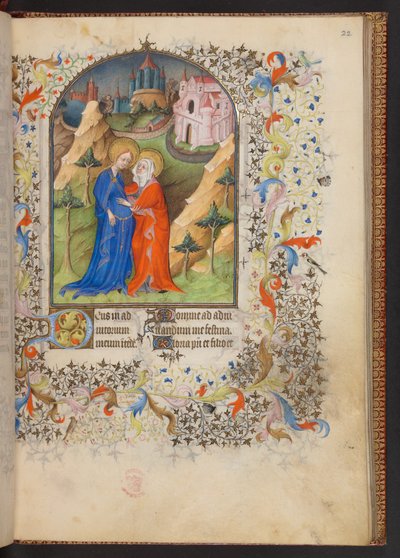 22
Deus in ad
iutorium
meum intēde.
Domine ad adiu
uandum me festina.
Gloria pr̄i et filio et